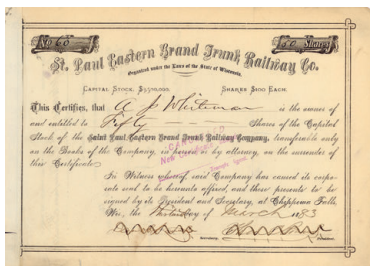 No 60 50 Shares
St. Paul Eastern Grand Trunk Railway Co.
Organized under the Laws of the State of Wisconsin.
CAPITAL STOCK, SHARES $100 EACH.
This Certifies, that A J Whiteman is the owner of
and entitled to Fifty Shares of the Capital
Stock of the Saint Paul Eastern Grand Trunk Railway Company, transferable only
on the Books of the Company, in person or by attorney, on the surrender of
this Certificate.
CANCELLED
New
In Witness whereof, said Company has caused its corpo-
rate seal to be hereunto affixed, and these presents to be
signed by its President and Secretary, at Chippewa Falls,
Wis., the day of March 1883
Secretary. President.